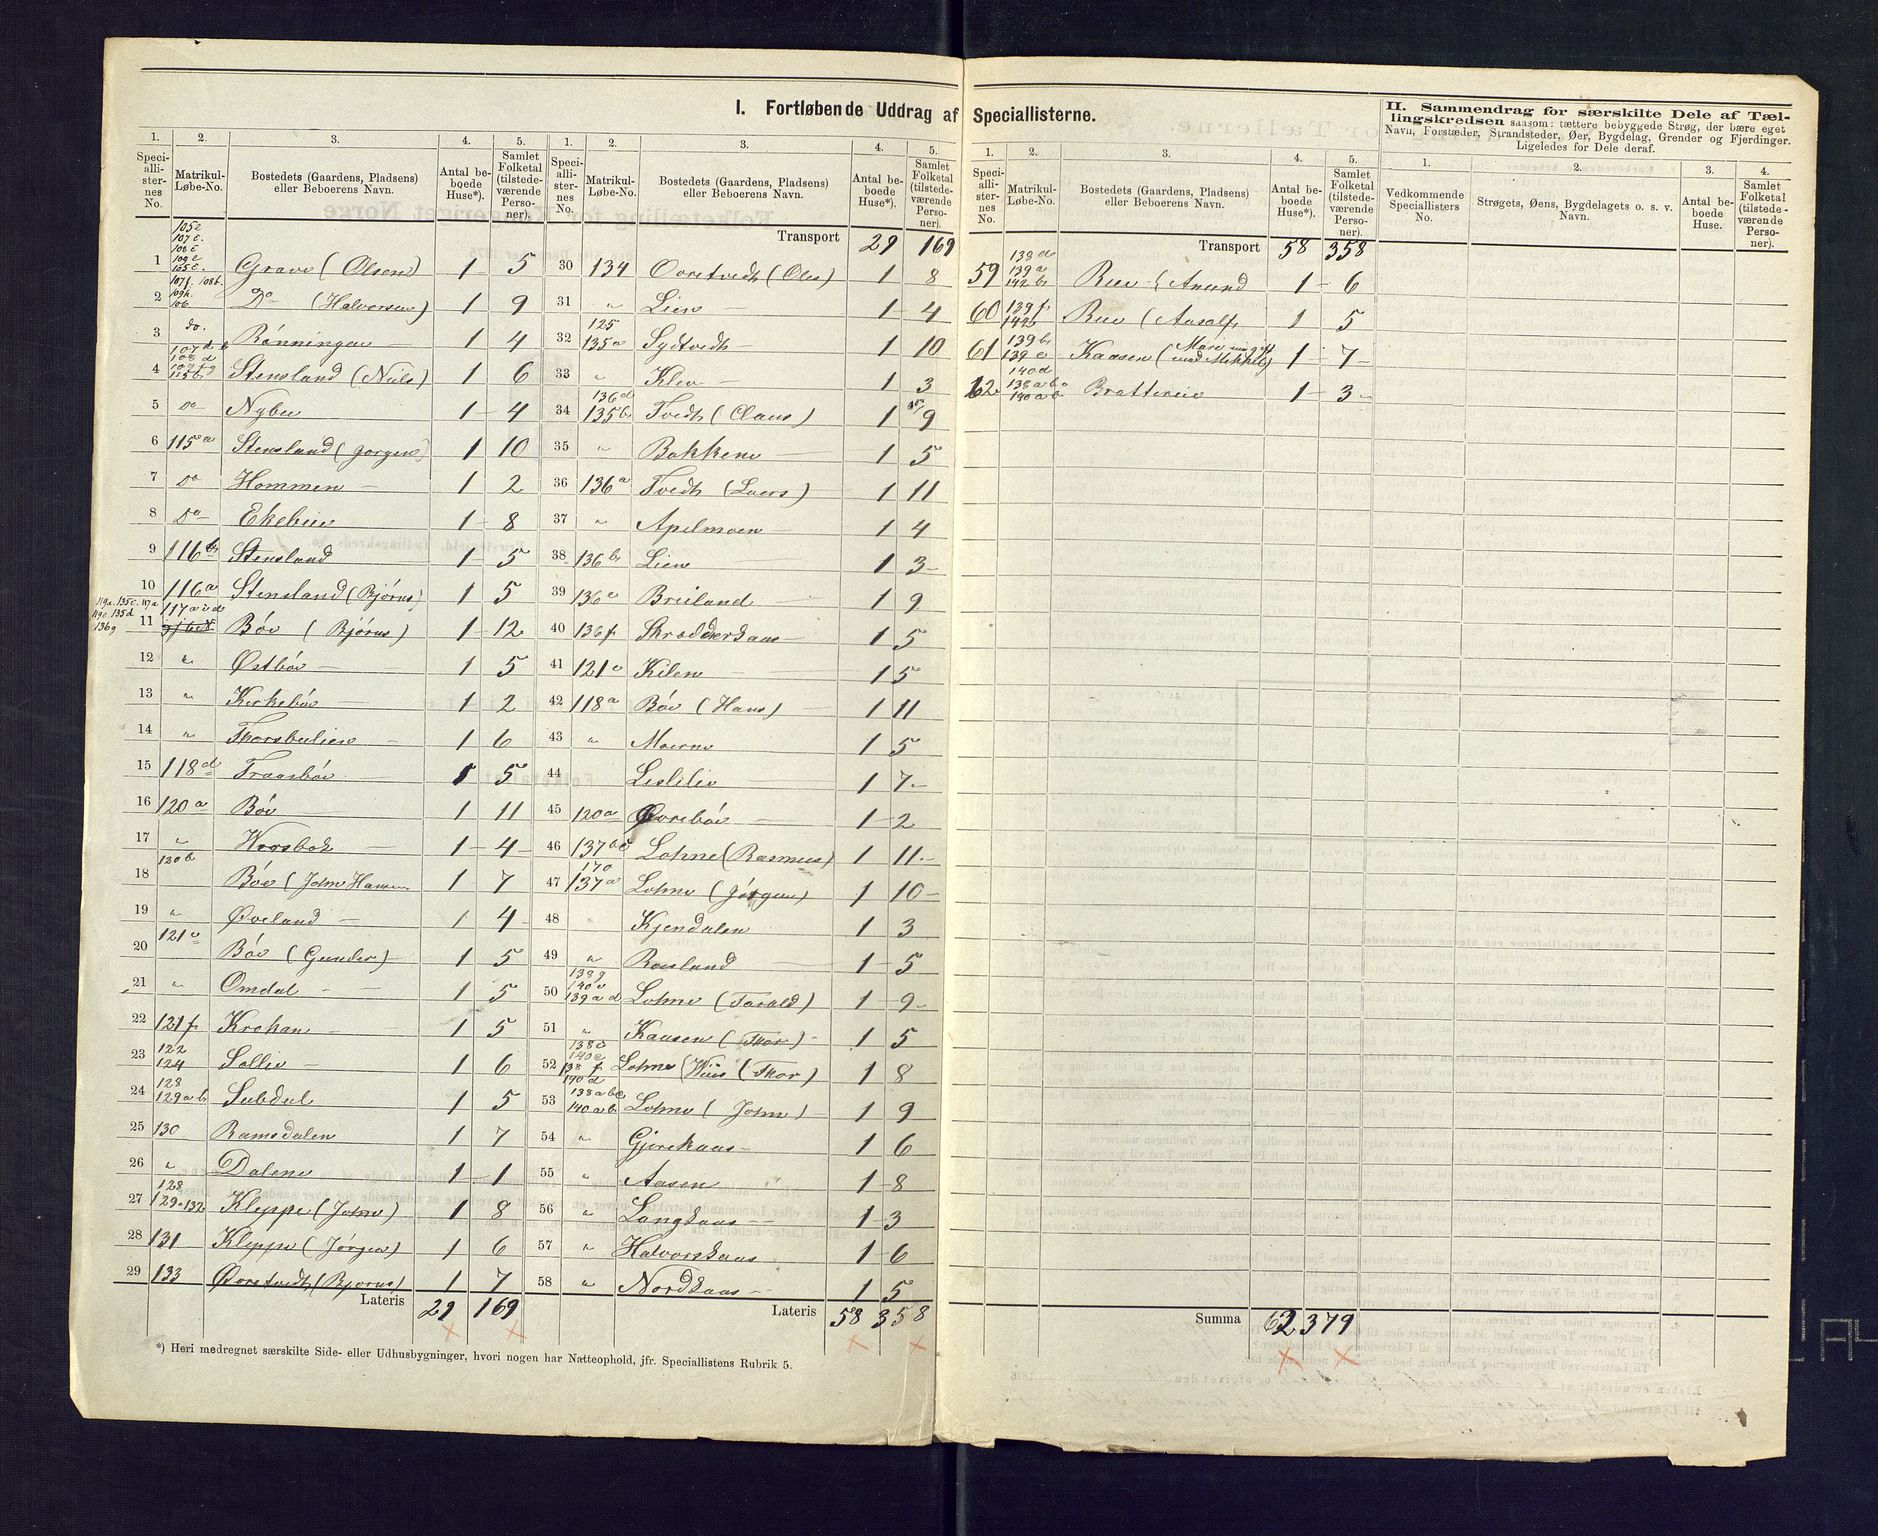 I. Fortløbende Uddrag af Speciallisterne.
II. Sammendrag for særskilte Dele af Tællingskredsen saasom: tættere bebyggede Strøg, der bære eget Navn, Forstæder, Strandsteder, Øer, Bygdelag, Grender og Fjerdinger. Ligeledes for Dele deraf.
1. Speciallisternes No. 2. Matrikul-Løbe-No. 3. Bostedets (Gaardens, Pladsens) eller Beboerens Navn. 4. Antal beboede Huse*). 5. Samlet Folketal (tilstedeværende Personer).
1 105e 107c. 108c 109e 165c. Grave (Olsen) 1 5
2 107f. 108b. 109h. 106. Do (Halvorsen) 1 9
3 do. Rønningen 1 4
4 Stensland (Niels) 1 6
5 Do Nybu 1 4
6 115a Stensland (Jørgen) 1 10
7 Do Hommen 1 2
8 Do Ekebu 1 8
9 116b Stensland 1 5
10 116a Stensland (Bjørus) 1 5
11 119a. 135c. 117a 119c. 135d 117a i d 136g Bøe (Bjørus) 1 12
12 " Østbøe 1 5
13 " Kirkebøe 1 2
14 " Thorsbulien 1 6
15 118d Traasbøe 1 5
16 120a Bøe 1 11
17 " Worsbok 1 4
18 120b Bøe (John Hansen 1 7
19 " Øveland 1 4
20 121c Bøe (Gunder) 1 5
21 " Omdal 1 5
22 121f Krokan 1 5
23 122 124 Sollie 1 6
24 128 129ab Subdal 1 5
25 130 Ramsdalen 1 7
26 " Dalene 1 1
27 128 129-132 Kleppe (John) 1 8
28 131 Kleppe (Jørgen) 1 6
29 133 Øvretvedt (Bjørus) 1 7
Lateris 29 169
*) Heri medregnet særskilte Side- eller Udhusbygninger, hvori nogen har Natteophold, jfr. Speciallistens Rubrik 5.
1. Speciallisternes No. 2. Matrikul-Løbe-No. 3. Bostedets (Gaardens, Pladsens) eller Beboerens Navn. 4. Antal beboede Huse*). 5. Samlet Folketal (tilstedeværende Personer).
Transport 29 169
30 134 Overtvedt (Ols) 1 8
31 " Lien 1 4
32 125 135a Sydtvedt 1 10
33 " Klev 1 3
34 136d 135b Tvedt (Claus) 1 9
35 " Bakken 1 5
36 136a Tvedt (Lars) 1 11
37 " Apelmoen 1 4
38 136b Lien 1 3
39 136e Breiland 1 9
40 136f Skrædderdaas 1 5
41 121c Kilen 1 5
42 118a Bøe (Hans) 1 11
43 " Moerne 1 5
44 Leslilie 1 7
45 120a Øvrebøe 1 2
46 137bc Lohne (Rasmus) 1 11
47 170 137a Lohne (Jørgen) 1 10
48 Kjendalen 1 3
49 " Rousland 1 5
50 138g 140c 139ad Lohne (Tarald) 1 9
51 " Kaasen (Thor) 1 5
52 138c 140e 138f 190d Lohne Wiis (Thor) 1 8
53 138abc 140ab Lohne (John) 1 9
54 " Gjerekaas 1 6
55 " Aasen 1 8
56 " Langkaas 1 3
57 " Halvorskaas 1 6
58 " Nordkaas 1 5
Lateris 58 358
1. Speciallisternes No. 2. Matrikul-Løbe-No. 3. Bostedets (Gaardens, Pladsens) eller Beboerens Navn. 4. Antal beboede Huse*). 5. Samlet Folketal (tilstedeværende Personer).
Transport 58 358
59 138d 139a 142b Rue (Anund 1 6
60 139f 142b Rue (Aasolf 1 5
61 139b 139e Kaasen (Mari 1 7
62 140d 138abc 140ab Bratterie 1 3
Summa 62 379
1. Vedkommende Speciallisters No. 2. Strøgets, Øens, Bygdelagets o. s. v. Navn. 3. Antal beboede Huse. 4. Samlet Folketal (tilstedeværende Personer).